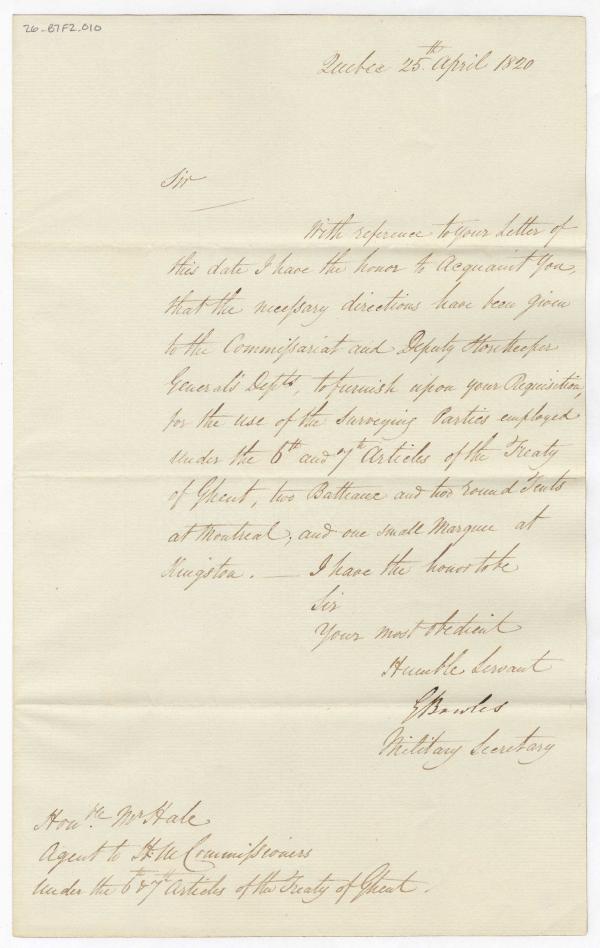 26-B7F2-010
Quebec 25th April 1820
Sir
With reference to your Letter of
this date I have the honor to Acquaint You,
that the necessary directions have been given
to the Commissariat and Deputy Storekeeper
General's Depts, to furnish upon your Requisition,
for the use of the Surveying Parties employed
under the 6th and 7th Articles of the Treaty
of Ghent, two Batteaux and two round Tents
at Montreal, and one small Marquee at
Kingston. — I have the honor to be
Sir
Your most obedient
Humble Servant
GBowles
Military Secretary
Honble Mr Hale
Agent to H M Commissioners
under the 6th & 7th Articles of the Treaty of Ghent.